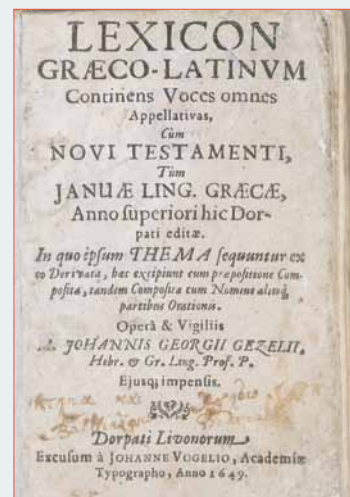 LEXICON
GRÆCO-LATINVM
Continens Voces omnes
Appellativas,
Cùm
NOVI TESTAMENTI,
Tùm
JANUÆ LING. GRÆCÆ,
Anno superiori hic Dor-
pati editæ.
In quo ipsum THEMA sequuntur ex
eo Derivata, hæc excipiunt cum præpositione Com-
posita, tandem Composita cum Nomine aliisq;
partibus Orationis.
Operâ & Vigiliis
JOHANNIS GEORGII GEZELII,
Hebr. & Gr. Ling. Prof. P.
Ejusq; impensis.
Dorpati Livonorum
Excusum à JOHANNE VOGELIO, Academiæ
Typographo, Anno 1649.